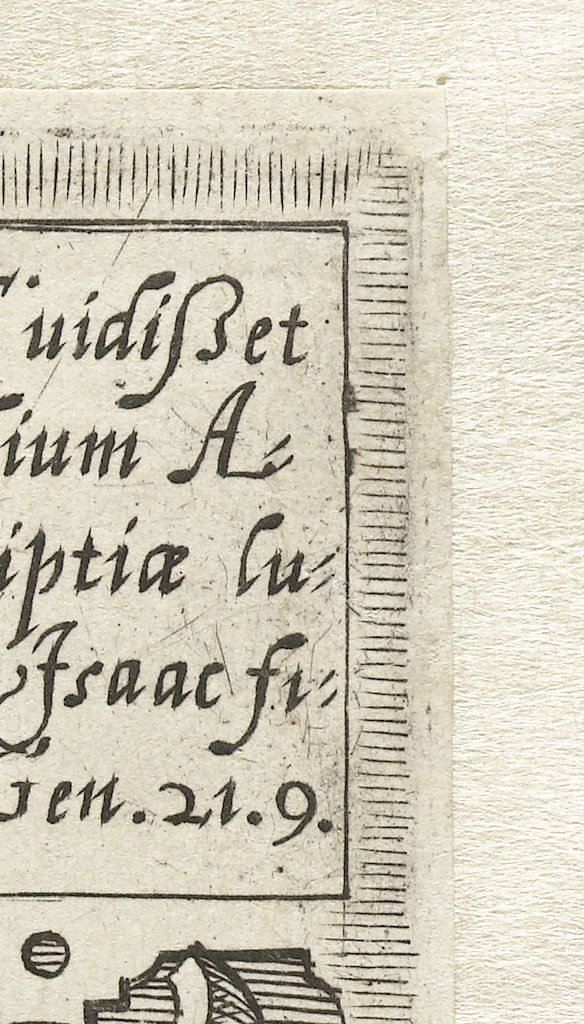 uidißet
ium A-
iptiæ lu-
Isaac fi-
Gen. 21. 9.